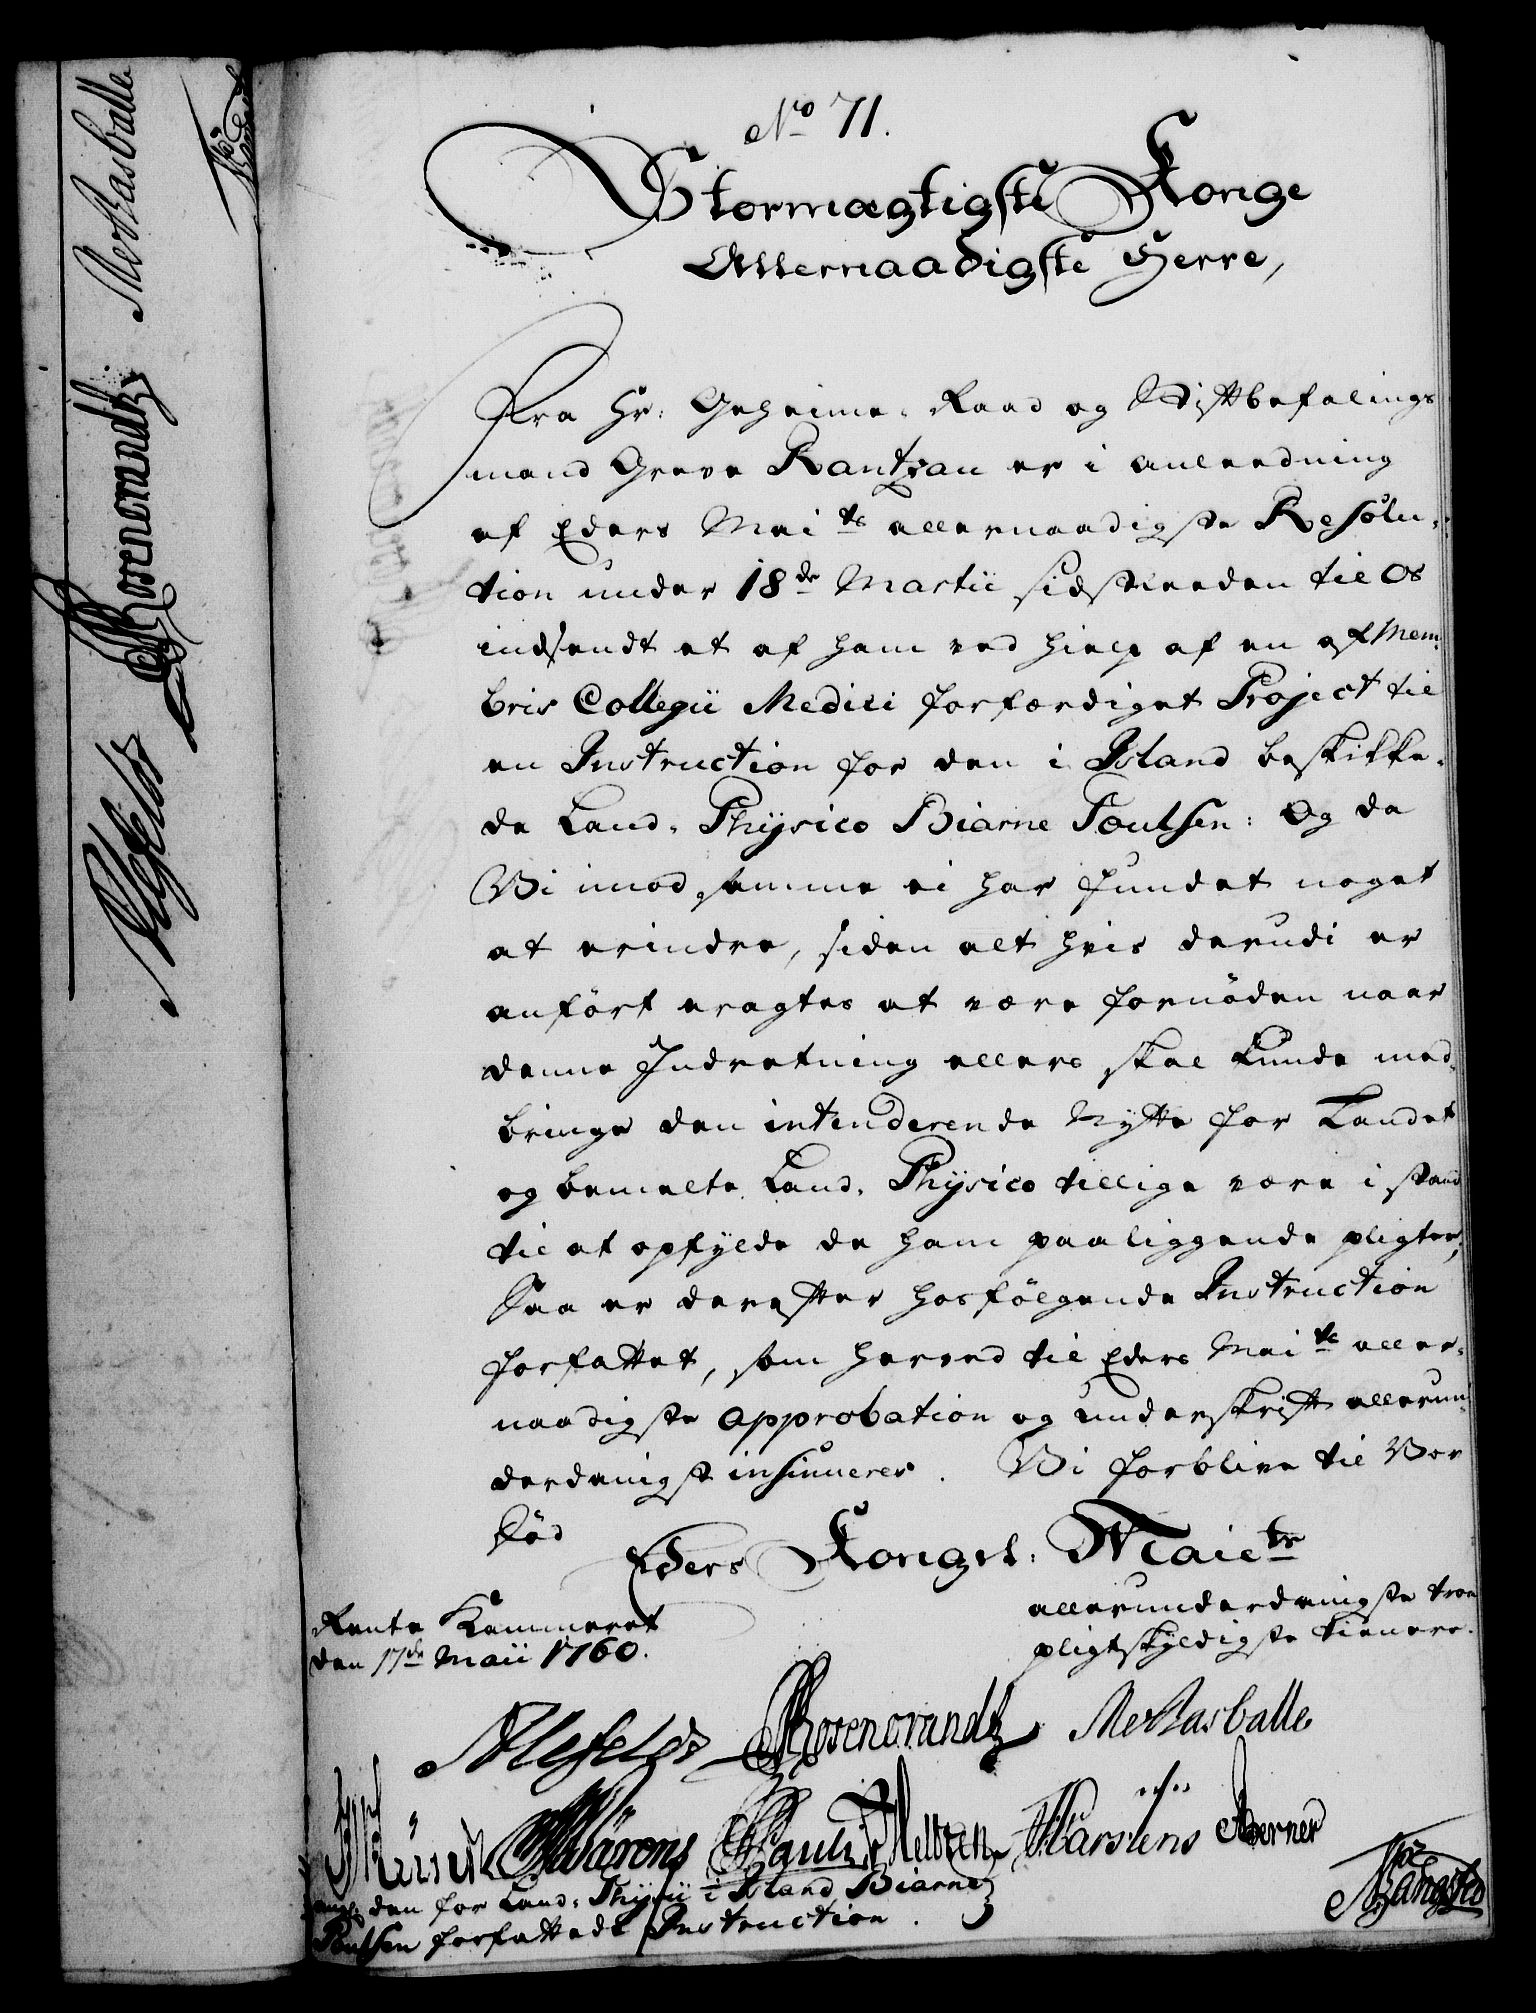 No 71.
Stormægtigste Konge
Allernaadigste Herre,
Fra Hr: Geheime-Raad og Stiftbefalings
mand Greve Rantzau er i anleedning
af Eders Mai ts allernaadigste Resolu-
tion under 18de Martii sidstleeden til Os
indsendt et af ham ved hielp af en af Mem-
bris Collegii Medici forfærdiget Project til
en Instruction for den i Island beskikke-
de Land-Physico Biarne Poulsen: Og da
Vi imod samme ei har fundet noget
at erindre, siden alt hvis derudi er
anført eragtes at være fornöden naar
denne Indretning ellers skal kunde med-
bringe den intenderende Nytte for Landet
og bemelte Land-Physico tillige være i stand
til at opfylde de ham paaliggende pligter;
Saa er derefter hosfölgende Instruction
forfattet, som herved til Eders Mai ts aller-
naadigste Approbation og underskrift allerun-
derdanigst insinueres. Vi forblive til Vor
Död
Eders Kongel: Maiets
allerunderdanigste troe
pligtskyldigste tienere.
Rente Kammeret
den 17de Maii 1760.
Ahlefeldt Rosenorandtz
Wärons Pauli Karstens Berner
ang: den for Land-Physii i Island Biarne
Poulsen forfattede Instruction.
Bangsted